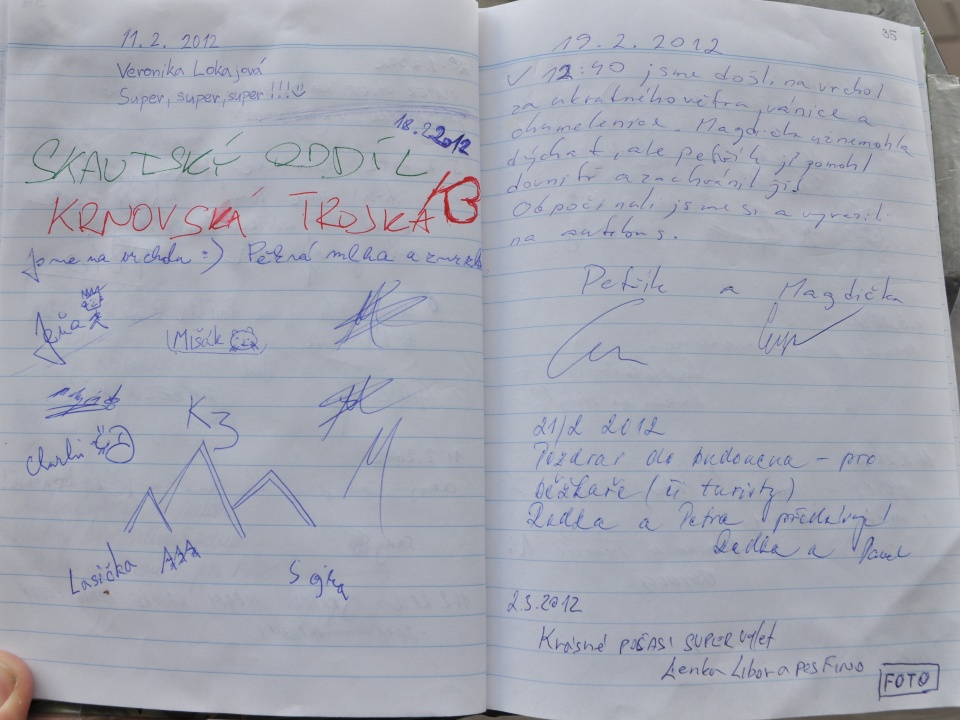 11.2. 2012
Veronika Lokajová
Super, super, super!!!
18.2.2012
SKAUTSKÝ ODDÍL
KRNOVSKÁ TROJKA K3
Jsme na vrcholu :) Pěkná mlha a zmrzlo
Mišák
K3
Charlie
Lasička
Sojka
35
19.2.2012
V 12:40 jsme došli na vrchol
za ukrutného větru, vánice a
chumelenice. Magdička už nemohla
dýchat, ale Petřík jí pomohl
dovnitř a zachránil ji.
Odpočinuli jsme si a vyrazili
na autobus.
Petřík a Magdička
21/2 2012
Pozdrav do budoucna - pro
běžkaře (či turisty)
Radka a Petra předávají
Radka a Pavel
2.3.2012
Krásné POČASÍ SUPER výlet
Lenka Libor a pes FINO
FOTO